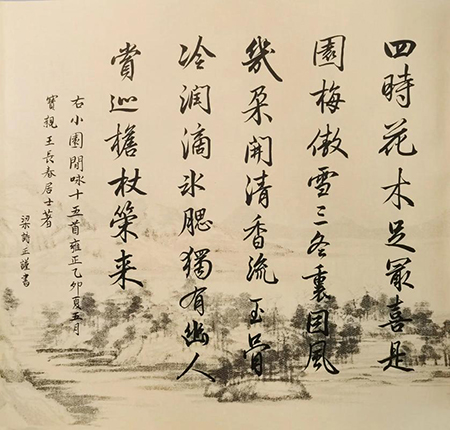 四時花木足冣喜是
園梅傲雪三冬裏因風
幾朵開清香流玉骨
冷潤滴冰腮獨有幽人
賞巡檐杖策来
右小園閒咏十五首雍正乙卯夏五月
寶親王長春居士著
梁詩正謹書